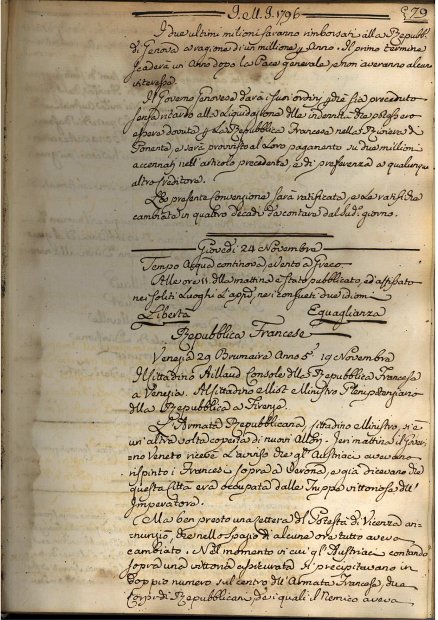 I. M. I. 1796
579
I due ultimi milioni saranno rimborsati alla Repubb.
di Genova a ragione di un milione p. Anno. Il primo termine
scaderà un Anno dopo la Pace generale, e non averanno alcun
interesse.
Il Governo Genovese darà i suoi ordini, che sia proceduto
senza ritardo alla liquidazione delle indennità, che possero
essere dovute p. La Repubblica Francese nella Riviera di
Ponente, e sarà provvisto al Loro pagamento su due milioni
accennati nell'articolo precedente, e di preferenza a qualunque
altro Creditore.
La presente Convenzione sarà ratificata, e La ratifica
cambiata in quattro decadi da contare dal sud.o giorno.
Giovedì 24 Novembre
Tempo Acqua continova, e vento a Greco.
Alle ore 11 della mattina è stato pubblicato, ed affissato
nei soliti Luoghi nei consueti due idiomi
Libertà Eguaglianza
Repubblica Francese
Venezia 29 Brumaire Anno 5.o 19 Novembre
Il Cittadino Aillaud Console della Repubblica Francese
a Venezia. Al Cittadino Miot Ministro Plenipotenziario
della Repubblica a Firenze.
L'Armata Repubblicana, Cittadino Ministro, si è
un'altra volta coperta di nuovi Allori. Jeri mattina il Gover-
no Veneto ricevè L'avviso che gl'Austriaci avevano
rispinto i Francesi sopra a Verona, e già dicevano che
questa Città era occupata dalle Truppe vittoriose dell'
Imperatore.
Ma ben presto una Lettera del Potestà di Vicenza an-
nunziò, che nello spazio di alcune ore tutto aveva
cambiato. Nel momento in cui gl'Austriaci contando
sopra una vittoria assicurata si precipitavano in
doppio numero sul centro dell'Armata Francese, due
Corpi di Repubblicani, dei quali il Nemico aveva